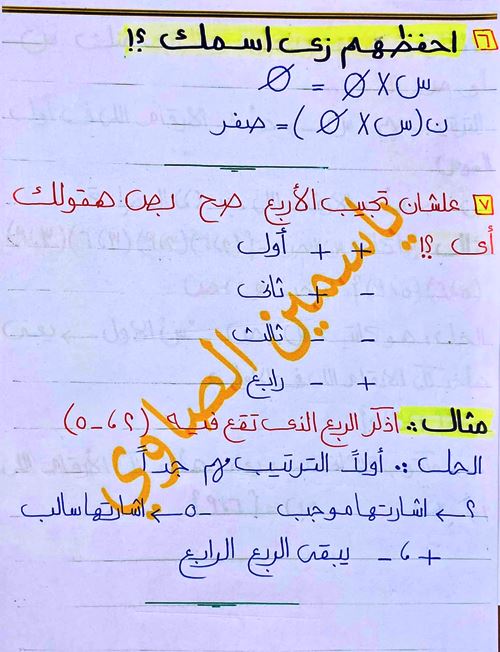 ٦ احفظهم زى اسمك ؟!
س X ∅ = ∅
ن(س X ∅) = صفر
٧ علشان تجيب الأربع صح بص هقولك
أى ؟!
+ + أول
- + ثانى
- - ثالث
+ - رابع
مثال: اذكر الربع الذى تقع فيه (٢، -٥)
الحل: أولاً الترتيب مهم جداً
٢ ← اشارتها موجب -٥ ← اشارتها سالب
+ ، - يبقى الربع الرابع
ياسمين الصاوي